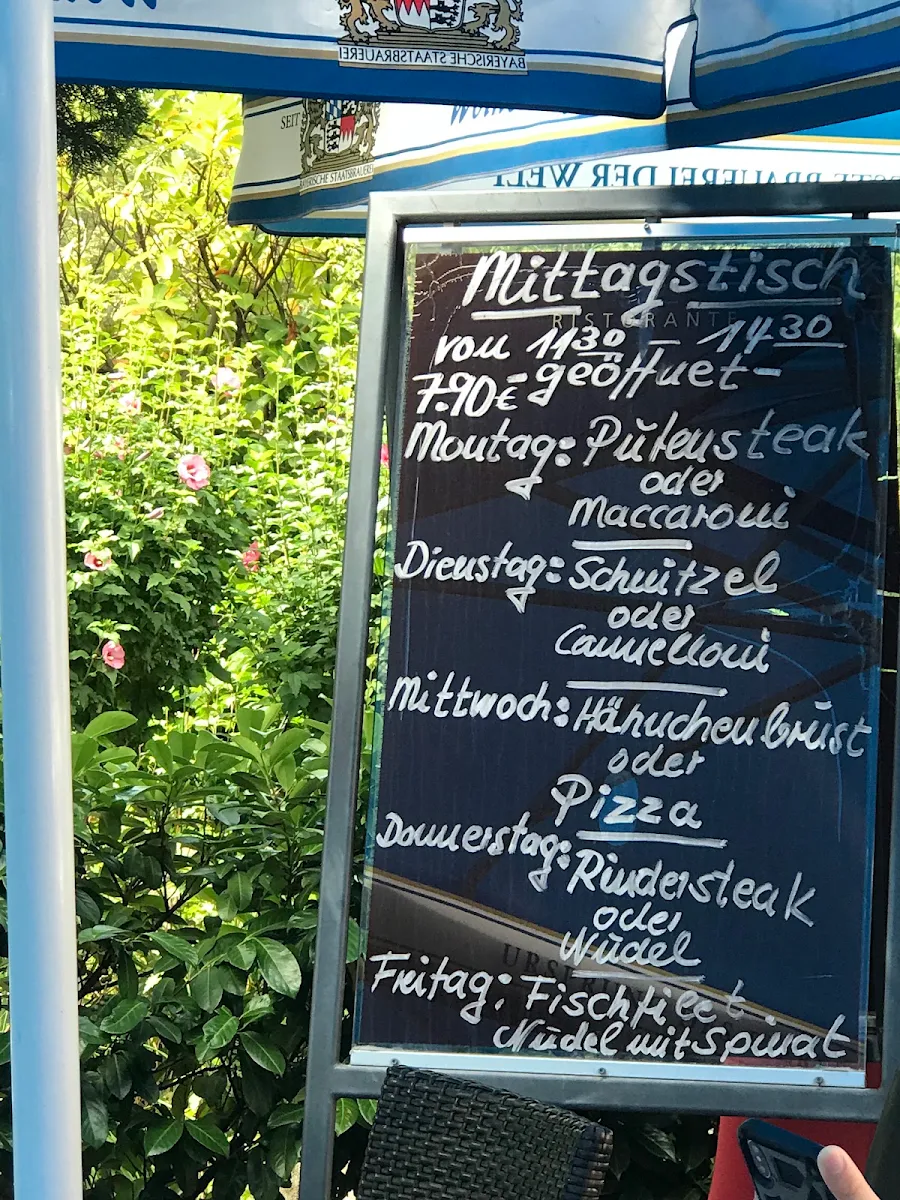 BAYERISCHE STAATSBRAUEREI
SEIT
BAYERISCHE STAATSBRAUEREI
BRAUEREI DER WELT
Mittagstisch
RISTORANTE
von 11 30 – 14 30
7.90€ -geöffnet-
Montag: Putensteak
oder
Maccaroni
Dienstag: Schnitzel
oder
Cannelloni
Mittwoch: Hähnchenbrust
oder
Pizza
Donnerstag: Rindersteak
oder
Nudel
Freitag: Fischfilet.
Nudel mit Spinat